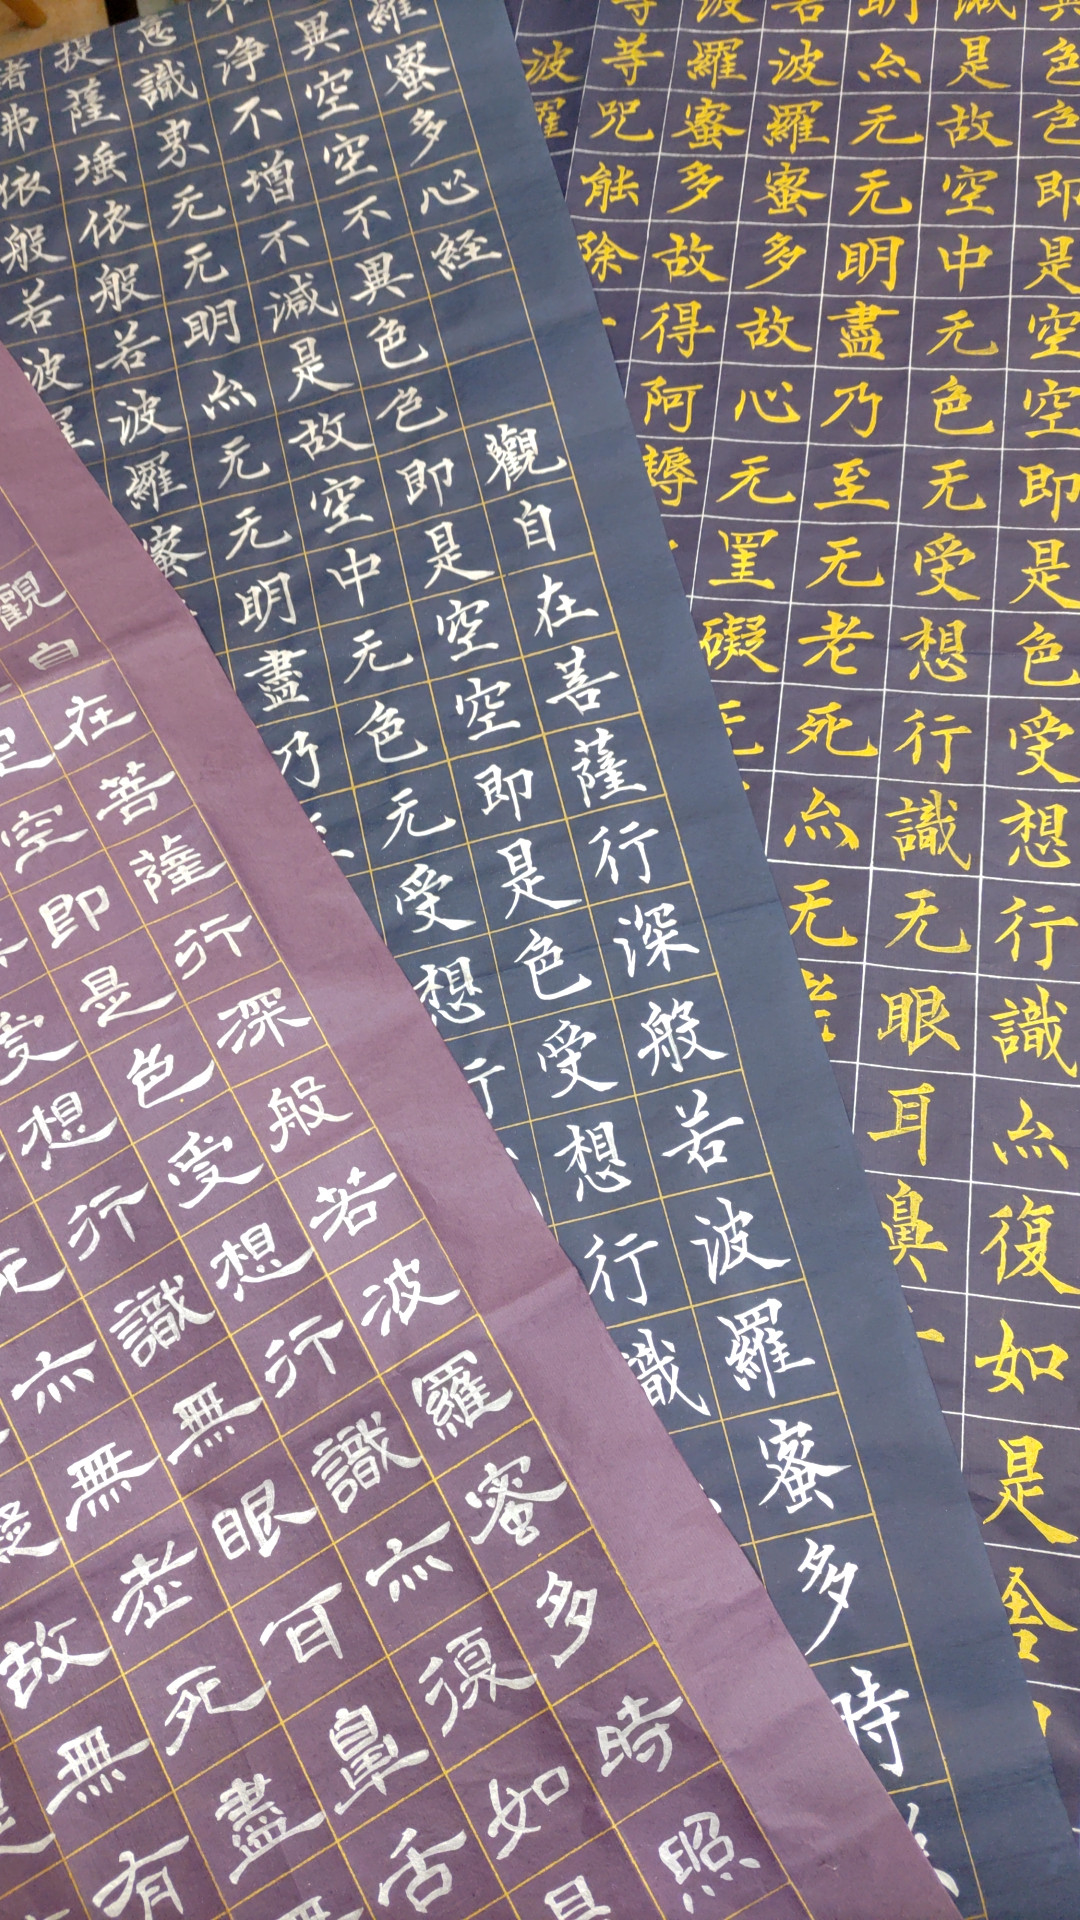 色色即是空空即是色受想行識亦復如是舍
減是故空中无色无受想行識无眼耳鼻
明亦无无明盡乃至无老死亦无
若波羅蜜多故心无罣礙无
波羅蜜多故得阿耨
等等咒能除一
波羅
羅蜜多心経
觀自在菩薩行深般若波羅蜜多時
異空空不異色色即是空空即是色受想行識
不浄不增不減是故空中无色无受想行
意識界无无明亦无无明盡乃
提薩埵依般若波羅蜜
諸弗依般若波羅
觀自在菩薩行深般若波羅蜜多時照
空空即是色受想行識亦復如是
受想行識無眼耳鼻舌
无亦無老死盡無
故無有